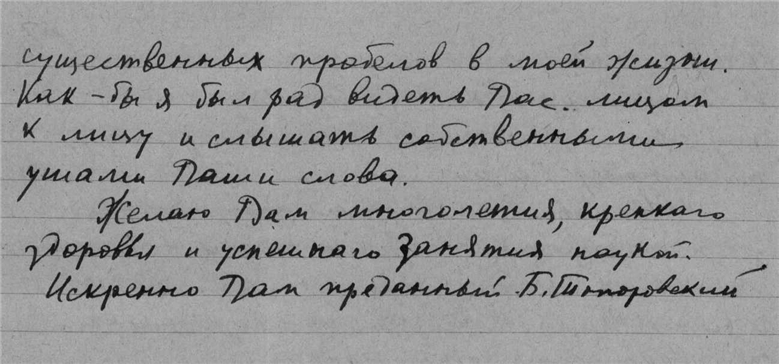 существенных пробелов в моей жизни.
Как-бы я был рад видеть Вас. лицом
к лицу и слышать собственными
ушами Ваши слова.
Желаю Вам многолетия, крепкаго
здоровья и успешнаго занятия наукой.
Искренно Вам преданный Б. Топоровский